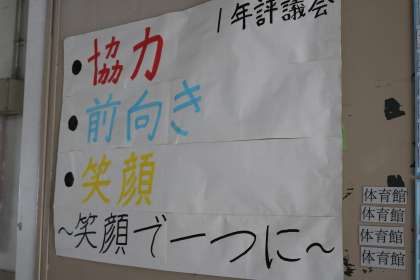 1年評議会
●協力
●前向き
●笑顔
~笑顔で一つに~
体育館
体育館
体育館
体育館